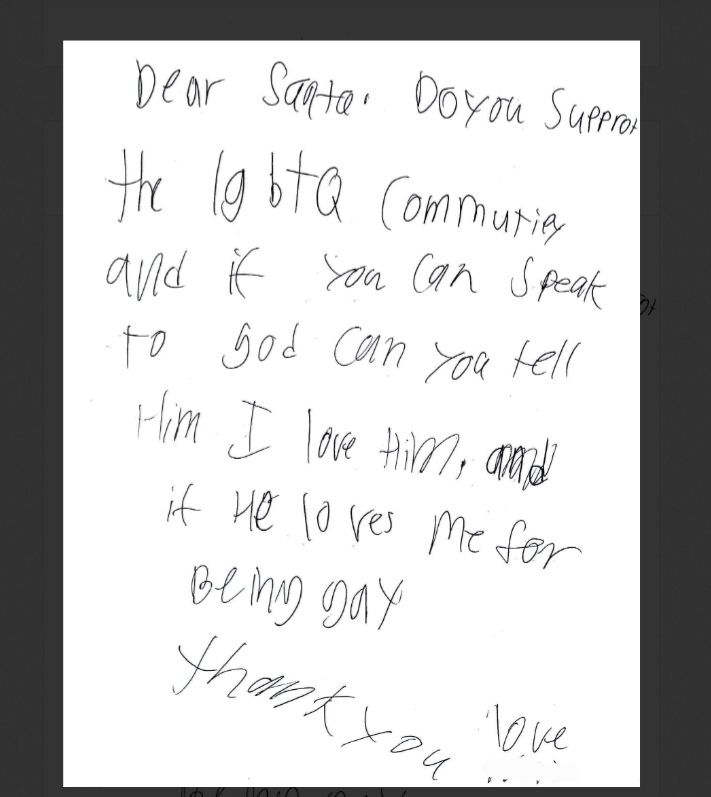 Dear Santa. Do you Support
the lgbtQ Commutiey
and if you Can Speak
to god Can you tell
Him I love Him, and
if He loves me for
Being gay
thank you love